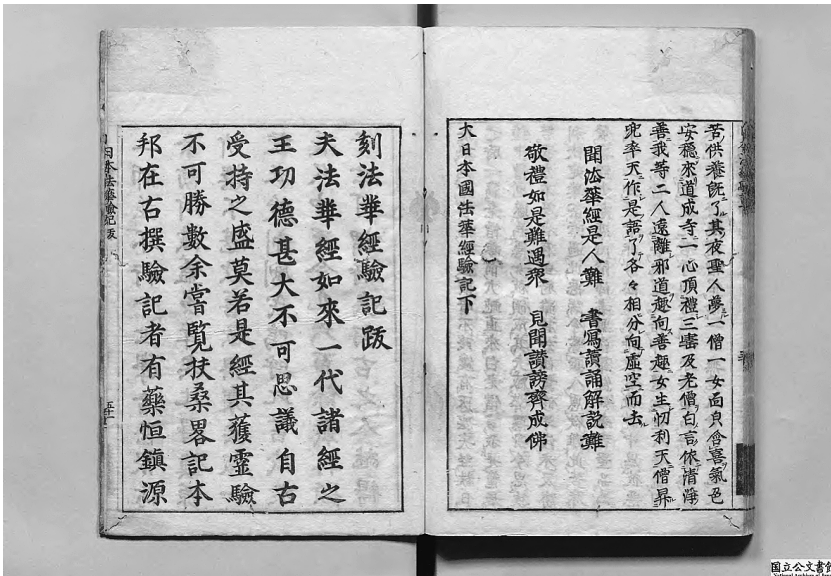 苦供養既了其夜聖人夢一僧一女面貌含喜氣色
安穩來道成寺一心頂禮三寶及老僧白言依清淨
善我等二人遠離邪道趣向善趣女生忉利天僧昇
兜率天作是語了各々相分向虛空而去
聞法華經是人難　書寫讀誦解說難
敬禮如是難遇衆　見聞讃謗齊成佛
大日本國法華經驗記下
刻法華經驗記跋
夫法華經如來一代諸經之
王功德甚大不可思議自古
受持之盛莫若是經其獲靈驗
不可勝數余嘗覽扶桑畧記本
邦在古撰驗記者有藥恒鎮源
日本法華驗記跋
国立公文書館